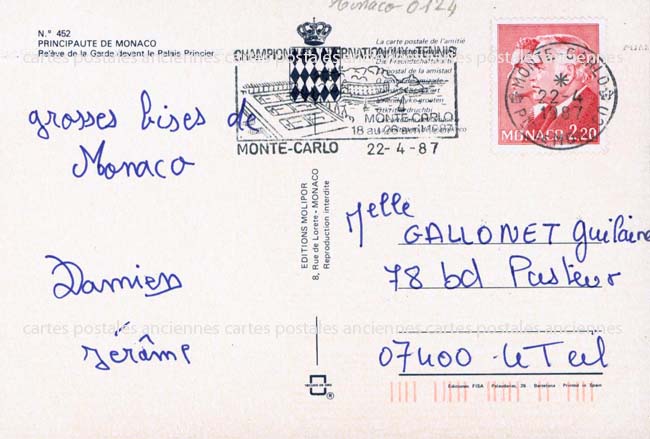 Monaco 0124
N.° 452
PRINCIPAUTE DE MONACO
Relève de la Garde devant le Palais Princier
La carte postale de l'amitié
CHAMPIONNATS INTERNATIONAUX de TENNIS
Die Freundschaftskarte
postal de la amistad
MONTE-CARLO
18 au 26 avril 1987
MONTE-CARLO
22-4-87
MONTE-CARLO
22-4
1987
MONACO 2,20
grosses bises de
Monaco
Damien
Jérôme
EDITIONS MOLIPOR
8, Rue de Lorete - MONACO
Reproduction interdite
Melle
GALLONET Guilaine
78 bd Pasteur
07400 Le Teil
cartes postales anciennes cartes postales anciennes cartes postales anciennes
Ediciones FISA Palaudarias, 26 Barcelona Printed in Spain